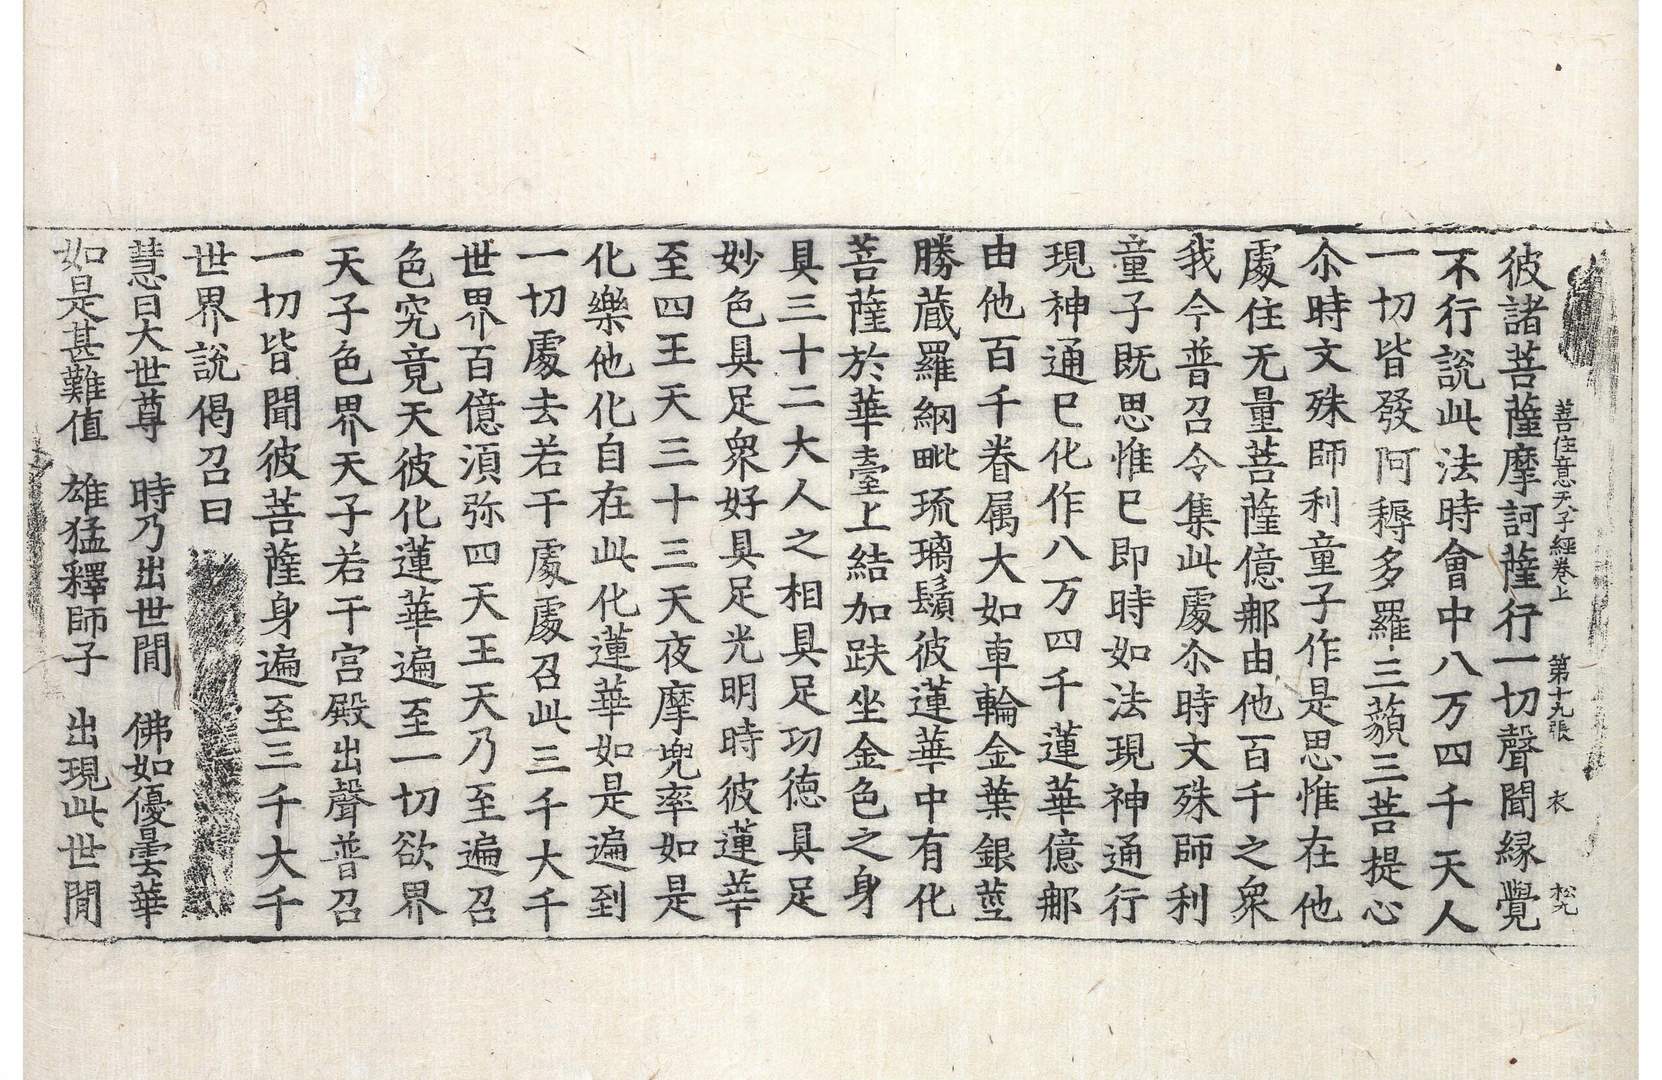 善住意天子經卷上 第十九張 衣 松九
彼諸菩薩摩訶薩行一切聲聞緣覺
不行說此法時會中八万四千天人
一切皆發阿耨多羅三藐三菩提心
尒時文殊師利童子作是思惟在他
處住无量菩薩億那由他百千之衆
我今普召令集此處尒時文殊師利
童子既思惟已即時如法現神通行
現神通已化作八万四千蓮華億那
由他百千眷属大如車輪金葉銀莖
勝蔵羅網毗琉璃鬚彼蓮華中有化
菩薩於華臺上結加趺坐金色之身
具三十二大人之相具足功德具足
妙色具足衆好具足光明時彼蓮華
至四王天三十三天夜摩兜率如是
化樂他化自在此化蓮華如是遍到
一切處去若干處處召此三千大千
世界百億湏弥四天王天乃至遍召
色究竟天彼化蓮華遍至一切欲界
天子色界天子若干宫殿出聲普召
一切皆聞彼菩薩身遍至三千大千
世界說偈召曰
慧日大世尊 時乃出世間 佛如優曇華
如是甚難值 雄猛釋師子 出現此世間